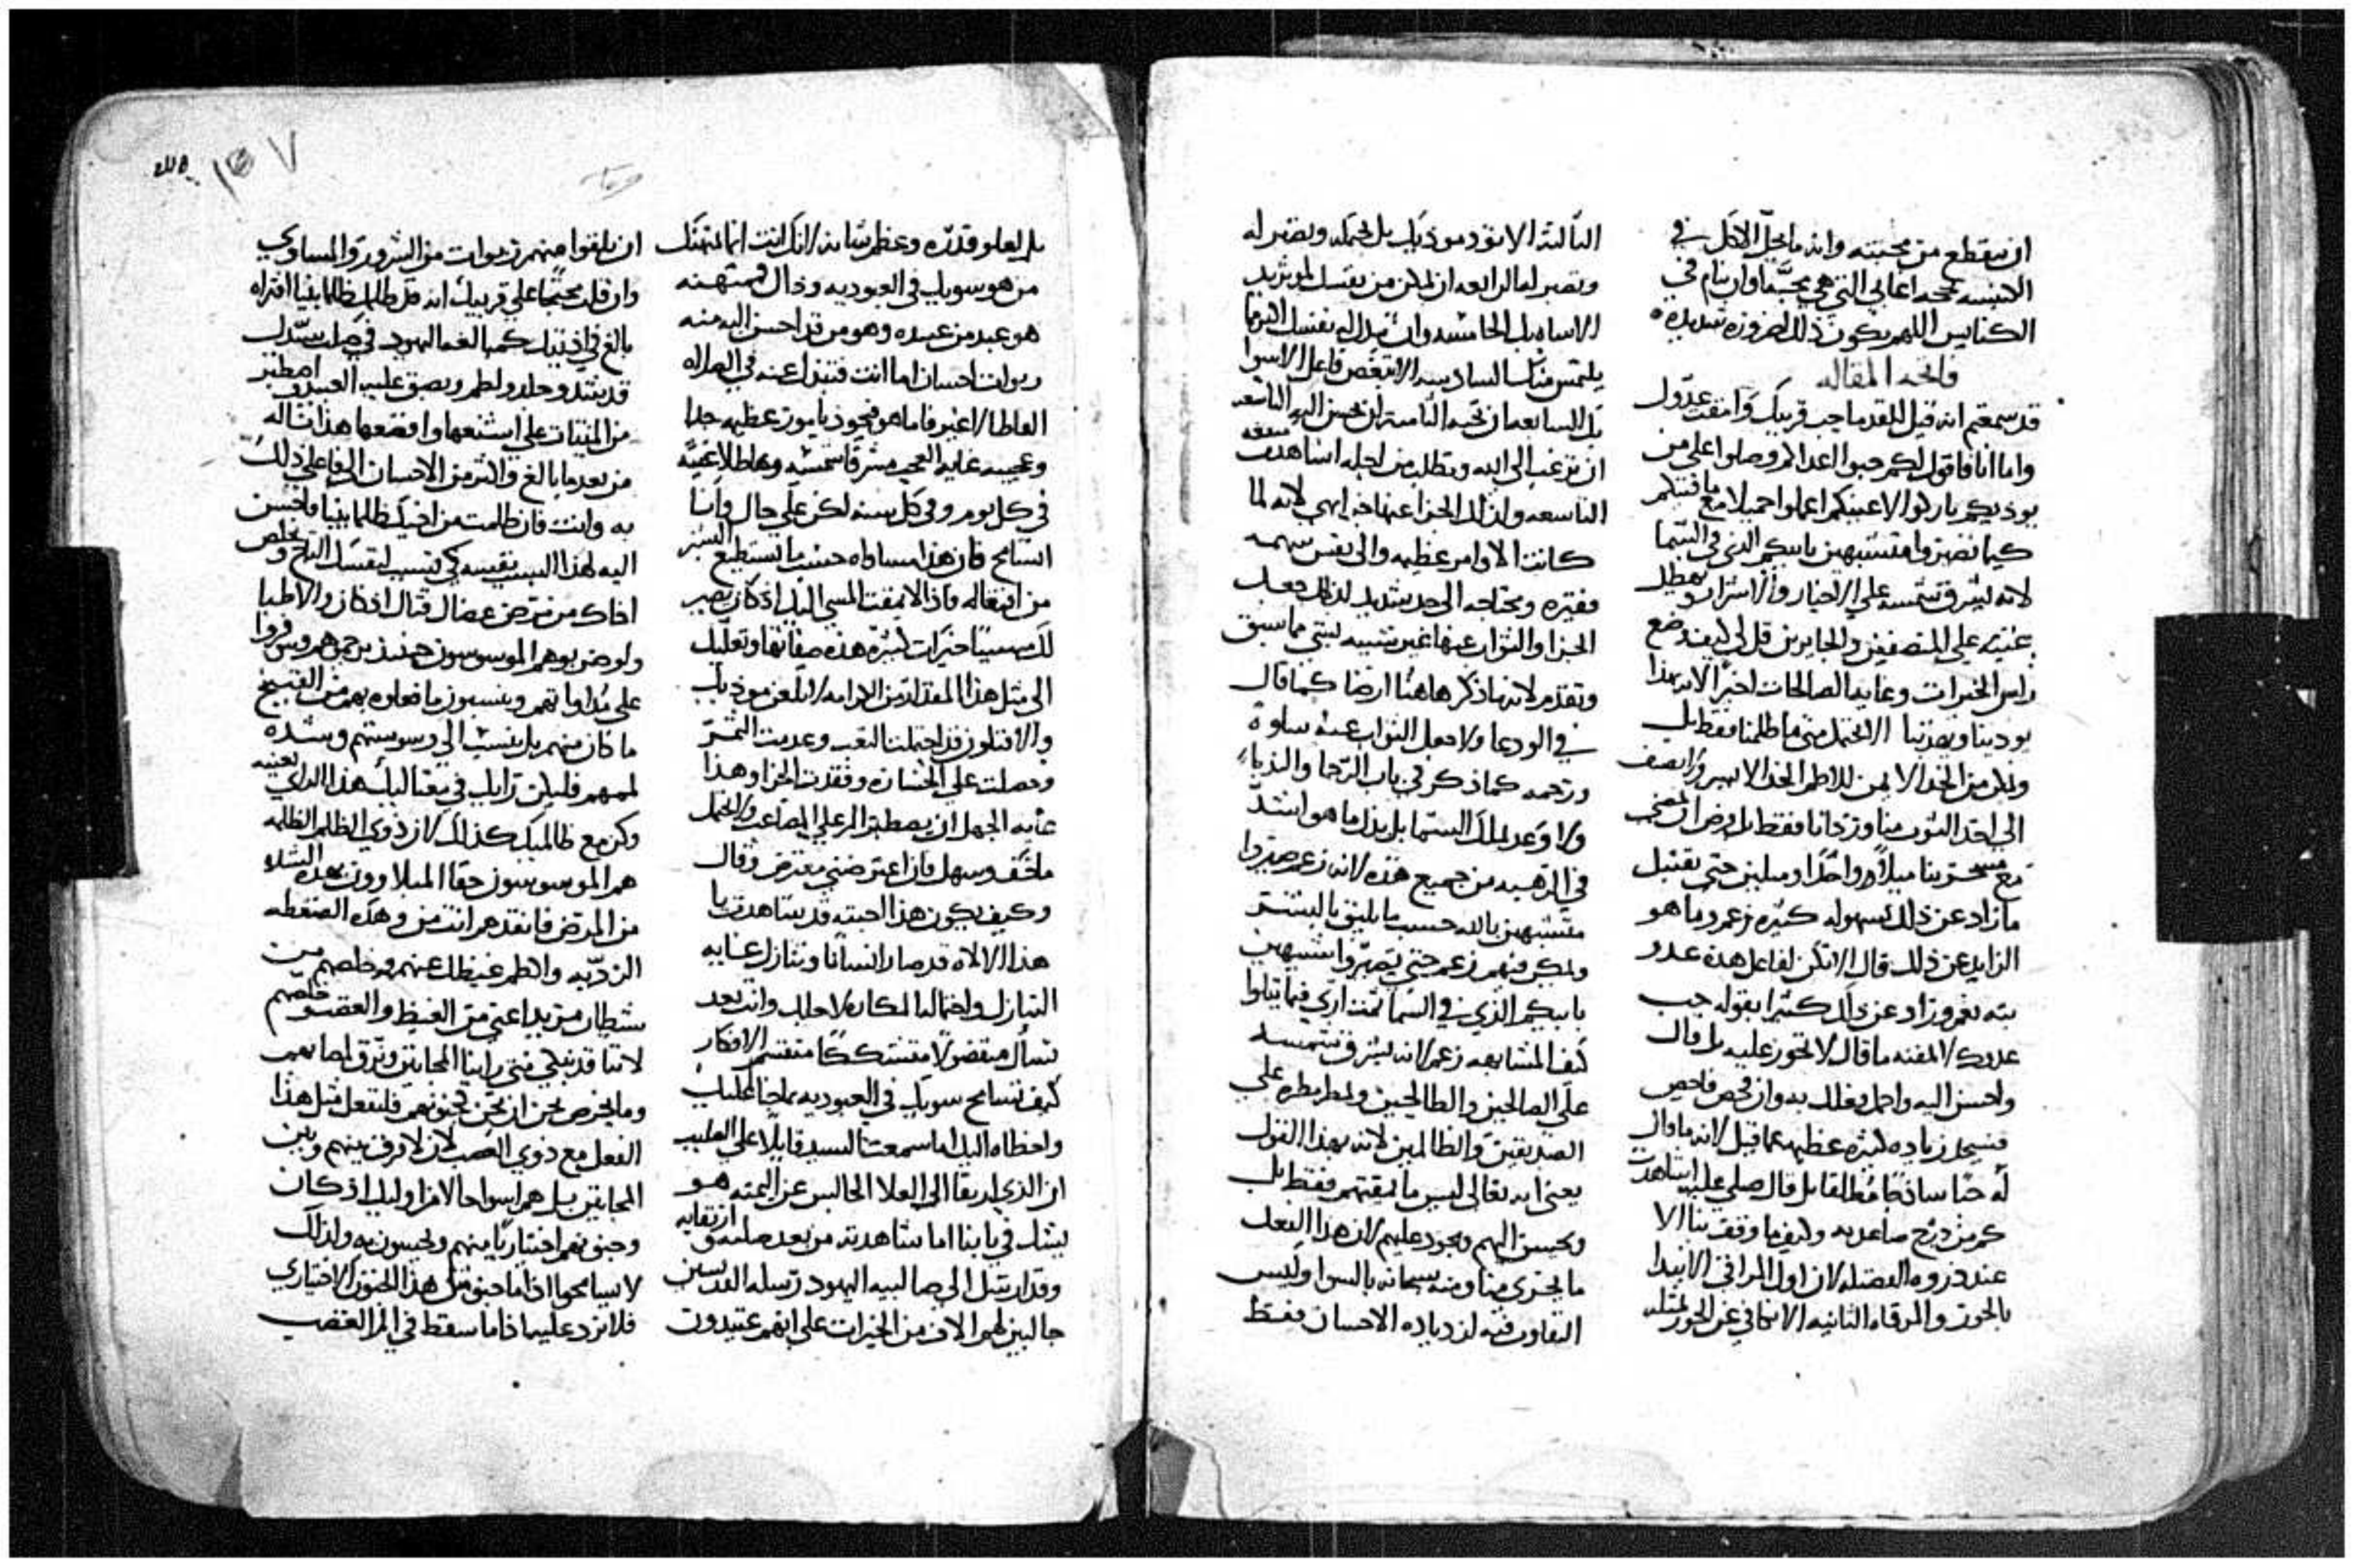 ان ينقطع من محبته وانه ما يحل الاكل في
الكنيسه
الكنايس اللهم يكون ذلك لضروره شديده
فاتحه المقاله
قد سمعتم انه قيل للقدما حب قريبك وامقت عدوك
واما انا فاقول لكم حبوا اعداكم وصلوا على من
يوذيكم باركوا لاعنيكم اعملوا جميلا مع ماقتيكم
كيما تصيروا متشبهين بابيكم الذي في السما
لانه يشرق شمسه على الاخيار والاشرار ويمطل
غيثه على المنصفين والجايرين قل لي كيف وضع
راس الخيرات وغايه الصالحات اخيرا لانه بهذا
يودبنا ويهذبنا الا نحتمل متى ما ظلمنا فقط بل
ونكن من الخد الايمن للاطم الخد الايسر ولا نضف
الى اخذ الثوب منا وزرتانا فقط بل ونرضا ان نمضي
مع مسخرينا ميلا واحدا وميلين حتى نقتبل
ما زاد عن ذلك بسهوله كثيره زعم وما هو
الزايد عن ذلك قال الا تكن لفاعل هذه عدو
بته نعم وزاد عن ذلك كثيرا بقوله حب
عدوك لا تمقته ما قال لا تجور عليه بل قال
واحسن اليه واجمل بفعلك به وان فحص فاحص
فسيجد زياده كثيره عظيمه عما قيل لانه ما قال
له حبا ساذجا مطلقا بل قال صلي عليه اشاهدت
كم من درج صاعد به وكيف ما وقف بنا الا
عند ذروه الفضيله لان اول المراقي الا نبدا
بالجور والمرقاه الثانيه الا نكافي عن الجور بمثله
الثالثه الا نوذي موذيك بل نحتمله ونصبر له
ونصبر له الرابعه ان نمكن من نفسك لمن يريد
الاساه بك الخامسه وان تبذل له نفسك اكثر مما
يلتمس منك السادسه الا تبغض فاعل الاسوا
بك السابعه ان تحبه الثامنه ان تحسن اليه التاسعه
ان ترغب الى الله وتطلب من اجله اشاهدت
التاسعه ولذلك الجزا عنها ابهى لانه لما
كانت الاوامر عظيمه والى نفس شهمه
مفتقره ومحتاجه الى جد شديد لذلك جعل
الجزا والثواب عنها غير شبيه بشي مما سبق
وتقدم لانه ما ذكر هاهنا ارضا كما قال
في الودعا ولا جعل الثواب عنه سلوه
ورحمه كما ذكر في باب الرحما والذبا
ولا وعد بملك السما بل بذل ما هو اشد
في الرهبه من جميع هذه لانه زعم صيروا
متشبهين بالله حسب ما يليق بالبشر
ونكن فيهم زعم حتى تصيروا شبيهين
بابيكم الذي في السما
كيف المشابهه زعم لانه يشرق شمسه
على الصالحين والطالحين ولمطر مطره على
الصديقين والظالمين لانه بهذا القول
يعني انه تعالى ليس ما يمقتهم فقط بل
ويحسن اليهم ويجود عليهم لان هذا الفعل
ما يجري منا ومنه سبحانه بالسوا وليس
التفاوت فيه لزدياده الاحسان فقط
بل لعلو قدره وعظم شانه لانك انت انما تمتهنك
من هو سويك في العبوديه وذاك فتمتهنه
هو عبد من عبيده وهو من قد احسن اليه منه
ربوات احسان اما انت فتبذل عنه في الصلاه
الفاظا لا غير فاما هو فيجود بامور عظيمه جدا
وعجيبه غايه العجب مشرقا شمسه وهاطلا غيثه
في كل يوم وفي كل سنه لكن على حال وانا
اسامح فان هذا مساواه حسب ما يستطيع البشر
من اتيعاله فاذا لا تمقت المسي اليك اذ كان يصير
لك مسببا خيرات كثيره هذه صفاتها وتعليك
الى مثل هذا المقدار من الكرامه لا تلعن موذيك
والا فتكون قد احتملت التعب وعدمت الثمر
وحصلت على الخساره وفقدت الجزا وهذا
غايه الجهل ان يصطبر المر على المصاعب ولا يحتمل
ما خف وسهل فان اعترضني معترض وقال
وكيف يكون هذا اجبته قد شاهدت يا
هذا الالاه قد صار انسانا وتنازل غايه
التنازل واحتمل المكاره لاجلك وانت بعد
تسال متقصيا متشككا منقسم الافكار
كيف تسامح سويك في العبوديه بما جنا عليك
واخطاه اليك اما سمعت السيد قايلا على الصليب
ان الذي ارتقا الى العلا الجالس عن اليمنه هو
بيثك في يا بنا اما شاهدته من بعد صلبه وارتقايه
وقد ارسل الى صالبيه اليهود رسله القديسين
جالبين لهم الاف من الخيرات على انهم عتيدون
ان يلقوا منهم ربوات من الشرور والمساوي
وان قلت محتجا على قريبك انه قد ظلمك ظلما بينا افتراه
بالغ في اذيتك كمبالغه اليهود في صلب سيدك
قد شد وجلد ولطم وبصق عليه العبيد واصطبر
من الميتات على اشنعها وافضعها هذا ناله
من بعد ما بالغ واكثر من الاحسان الى فاعلي ذلك
به وانت فان ظلمت من اخيك ظلما بينا فاحسن
اليه لهذا السبب نفسه كي تسبب لنفسك التاج وتخلص
اخاك من مرض عضال قتال اذ كان والاطبا
ولو ضربوهم الموسوسون حينئذ يرحموهم ويتوفروا
على مداواتهم وينسبون ما فعلوه بهم من القبيح
ما كان منهم بل ينسب الى وسوستهم وشده
لممهم فليكن رايك في مقتاليك هذا الراي بعينه
وكن مع ظالميك كذلك لان ذوي الظلم الظلمه
هم الموسوسون حقا المبلاوون بهذه الشده
من المرض فانقذهم انت من وهذه الضغطه
الرديه واكظم غيظك عنهم وخلصهم من
شطان مريد اعني من الغيظ والغضب وخلصهم
لاننا قد نبكي متى راينا المجانين ونرق لمصابهم
وما نحرص نحن ان نجن بجنونهم فلنفعل مثل هذا
الفعل مع ذوي الغضب لان لا فرق بينهم وبين
المجانين بل هم اسوا حالا من اوليك اذ كان
وجنونهم اختياريا منهم ويحبسون به ولذلك
لا يسامحوا اذا ما جنوا مثل هذا الجنون الاختياري
فلا نرد عليه اذا ما سقط في الم الغضب